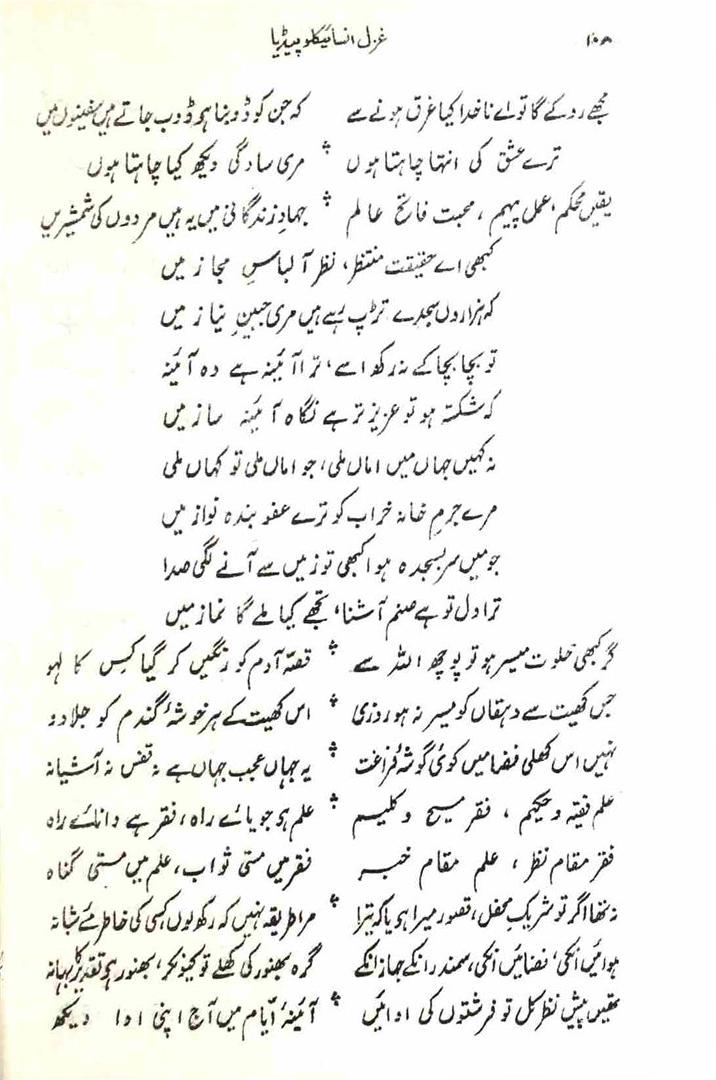 ۱۰۵ غزل انسائیکلوپیڈیا
مجھے روکے گا تو اے ناخدا کیا غرق ہونے سے کہ جن کو ڈوبنا ہو ڈوب جاتے ہیں سفینوں میں
ترے عشق کی انتہا چاہتا ہوں ؞ مری سادگی دیکھ کیا چاہتا ہوں
یقیں محکم، عمل پیہم، محبت فاتح عالم ؞ جہادِ زندگانی میں یہ ہیں مردوں کی شمشیریں
کبھی اے حقیقت منتظر، نظر آ لباسِ مجاز میں
کہ ہزاروں سجدے تڑپ رہے ہیں مری جبینِ نیاز میں
تو بچا بچا کے نہ رکھ اسے، ترا آئینہ ہے وہ آئینہ
کہ شکستہ ہو تو عزیز تر ہے نگاہ آئینہ ساز میں
نہ کہیں جہاں میں اماں ملی، جو اماں ملی تو کہاں ملی
مرے جرمِ خانہ خراب کو ترے عفو بندہ نواز میں
جو میں سر بسجدہ ہوا کبھی تو زمیں سے آنے لگی صدا
ترا دل تو ہے صنم آشنا، تجھے کیا ملے گا نماز میں
گر کبھی خلوت میسر ہو تو پوچھ اللہ سے ؞ قصۂ آدم کو رنگیں کر گیا کس کا لہو
جس کھیت سے دہقاں کو میسر نہ ہو روزی ؞ اس کھیت کے ہر خوشۂ گندم کو جلا دو
نہیں اس کھلی فضا میں کوئی گوشۂ فراغت ؞ یہ جہاں عجب جہاں ہے نہ قفس نہ آشیانہ
علم فقیہ و حکیم، فقر مسیح و کلیم ؞ علم ہے جویائے راہ، فقر ہے دانائے راہ
فقر مقام نظر، علم مقام خبر فقر میں مستی ثواب، علم میں مستی گناہ
نہ تھا اگر تو شریکِ محفل، قصور میرا ہو یا کہ تیرا ؞ مرا طریقہ نہیں کہ رکھ لوں کسی کی خاطر مئے شبانہ
ہوائیں انکی، فضائیں انکی، سمندر انکے جہاز انکے گرہ بھنور کی کھلے تو کیونکر، بھنور ہے تقدیر کا بہانہ
تھیں پیشِ نظر کل تو فرشتوں کی ادائیں ؞ آئینۂ ایّام میں آج اپنی ادا دیکھ